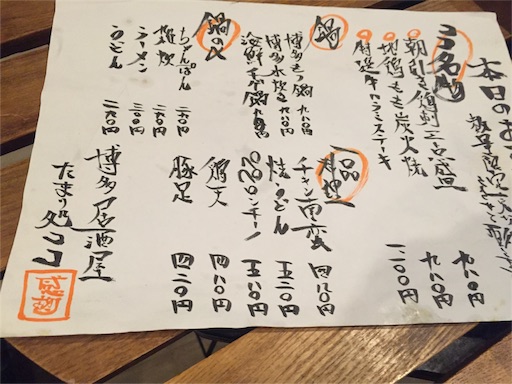 本日のお
ココ名物
朝引き鶏刺三点盛 九八〇円
地鶏もも炭火焼 九八〇円
特選牛サラミステーキ 一二〇〇円
鍋
博多もつ鍋 九八〇円
博多水炊き 九八〇円
鍋の〆
ちゃんぽん 二六〇円
雑炊
ラーメン 三〇〇円
うどん 二六〇円
一品料理
チキン南蛮 四八〇円
焼うどん 五二〇円
ペペロンチーノ 五八〇円
鶏天 四八〇円
豚足 四二〇円
博多居酒屋
たまり処ココ